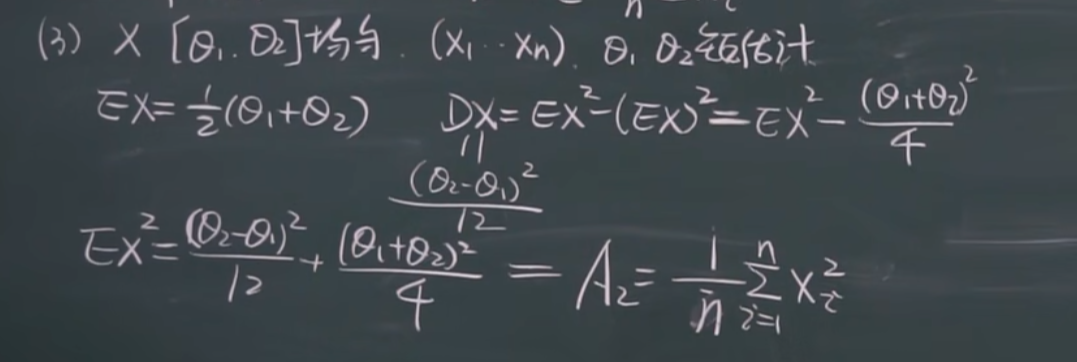 (3) X [θ₁, θ₂]均匀. (X₁ ‥ Xn). θ₁ θ₂矩估计
EX=½(θ₁+θ₂) DX=EX²-(EX)²=EX²-(θ₁+θ₂)²/4
‖
(θ₂-θ₁)²/12
EX²=(θ₂-θ₁)²/12+(θ₁+θ₂)²/4=A₂=1/n ∑ᵢ₌₁ⁿ Xᵢ²